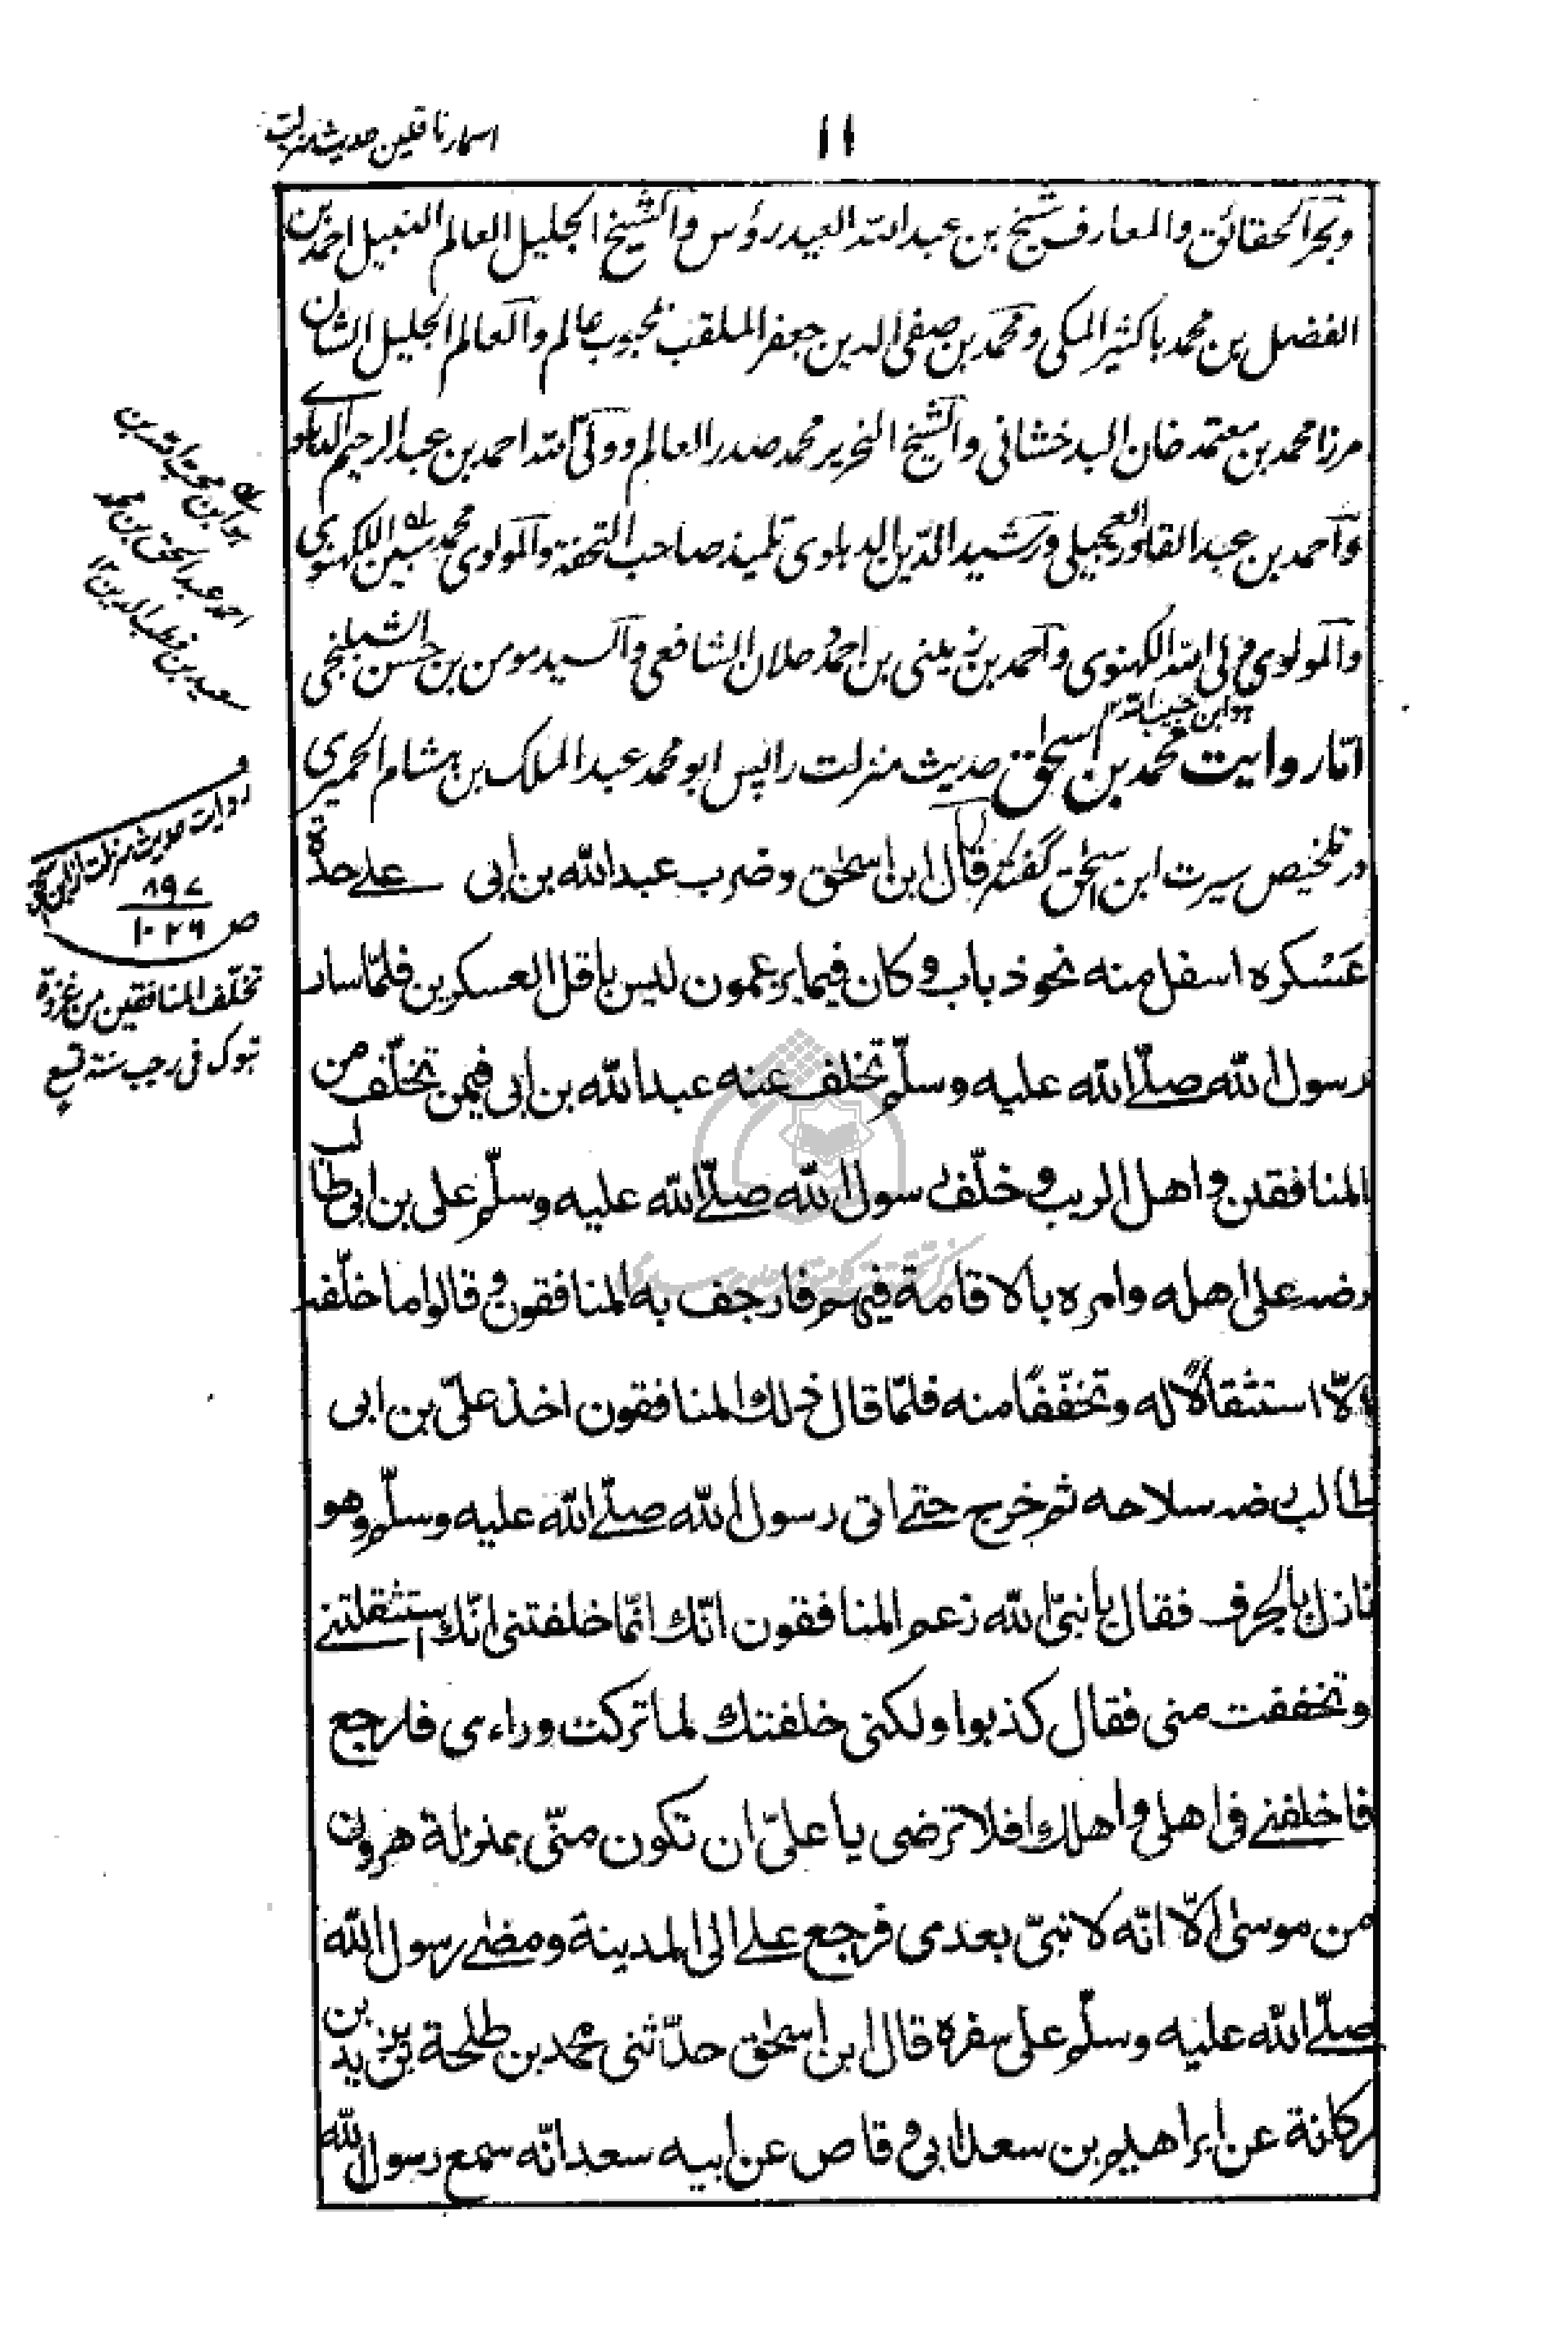 اسمار ناقلین حدیث منزلت
۱۱
وبحر الحقائق والمعارف شیخ بن عبدالله العیدروس والشیخ الجلیل العالم النبیل احمد بن
الفضل بن محمد باکثیر المکی و محمد بن صفی الدین جعفر الملقب بمحبوب عالم والعالم الجلیل الشان
مرزا محمد بن معتمد خان البدخشانی والشیخ النحریر محمد صدر العالم و ولی الله احمد بن عبدالرحیم الدهلوی
واحمد بن عبدالقادر العجیلی و رشید الدین الدهلوی تلمیذ صاحب التحفة والمولوی محمد مبین اللکهنوی
والمولوی ولی الله اللکهنوی واحمد بن زینی بن احمد دحلان الشافعی والسید مومن بن حسن الشبلنجی
هو ابن حبیب الله ۱۲
امّا روایت محمد بن اسحٰق حدیث منزلت را پس ابو محمد عبدالملک بن هشام الحمیری
در تلخیص سیرت ابن اسحٰق گفته قال ابن اسحٰق وضرب عبدالله بن ابی علے حدة
عَسْکره اسفل منه نحو ذباب وکان فیما یزعمون لیس باقل العسکرین فلمّا سار
رسول الله صلے الله علیه وسلّم تخلف عنه عبدالله بن ابی فیمن تخلّف من
المنافقین واهل الریب وخلّف رسول الله صلّے الله علیه وسلّم علی بن ابی طالب
رضہ علی اهله وامره بالاقامة فیهم فارجف به المنافقون وقالوا ما خلّفه
الّا استثقالًا له وتخفّفًا منه فلمّا قال ذلك المنافقون اخذ علیّ بن ابی
طالب رضہ سلاحه ثم خرج حتے اتی رسول الله صلّے الله علیه وسلّم وهو
نازل بالجرف فقال یا نبیّ الله زعم المنافقون انّك انّما خلفتنی انّك استثقلتنے
وتخففت منی فقال کذبوا ولکنی خلفتك لما ترکت وراءی فارجع
فاخلفنے فی اهلی واهلك افلا ترضی یا علیّ ان تکون منّی بمنزلة هرون
من موسیٰ الّا انّه لا نبیّ بعدی فرجع علے الی المدینة ومضے رسول الله
صلّے الله علیه وسلّم علی سفره قال ابن اسحٰق حدّثنی محمد بن طلحة بن یزید بن
رکانة عن ابراهیم بن سعد ابی وقاص عن ابیه سعد انّه سمع رسول الله
هو ابن محب الله بن
احمد عبدالحق بن محمد
سعید بن قطب الدین ۱۲
روایت حدیث منزلت از ابن اسحٰق
۸۹۷
ص ۱۰۲۶
تخلّف المنافقین من غزوة
تبوک فی رجب سنة تسع